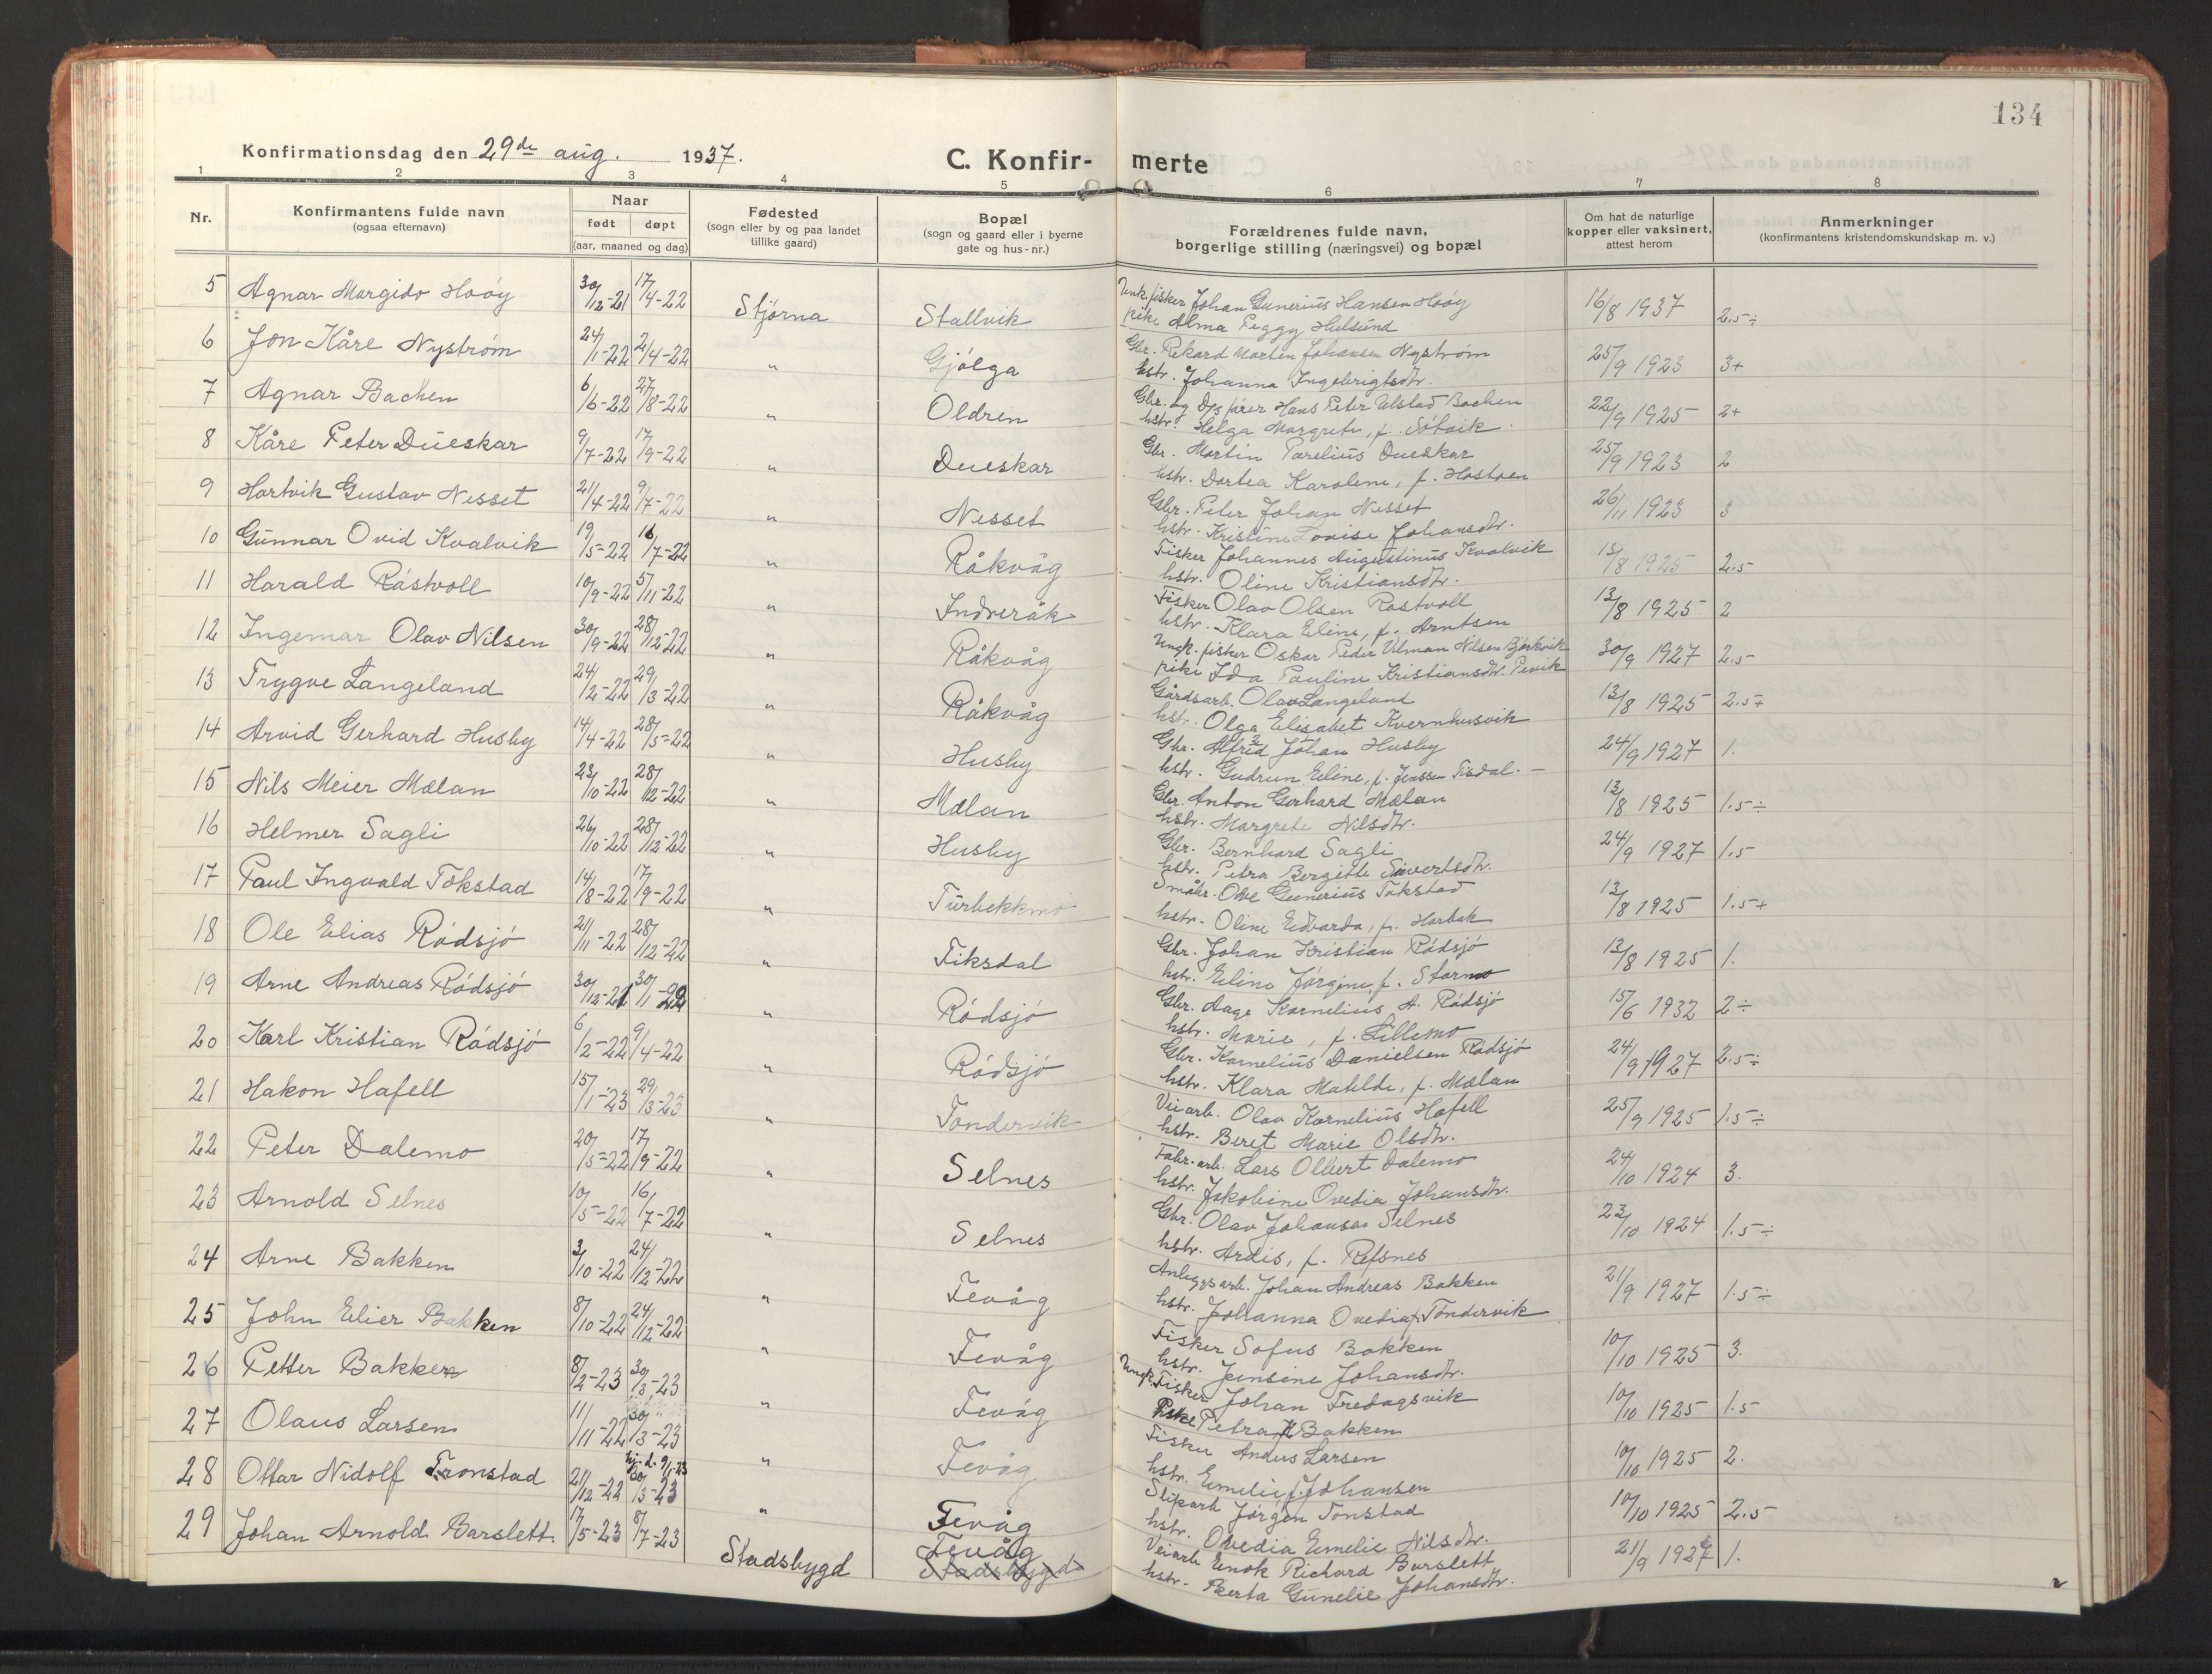 134
Konfirmationsdag den 29de aug. 1937.
C. Konfir- merte
1 2 3 4 5 6 7 8
Nr.
Konfirmantens fulde navn
(ogsaa efternavn)
Naar
født døpt
(aar, maaned og dag)
Fødested
(sogn eller by og paa landet
tillike gaard)
Bopæl
(sogn og gaard eller i byerne
gate og hus-nr.)
Forældrenes fulde navn,
borgerlige stilling (næringsvei) og bopæl
Om hat de naturlige
kopper eller vaksinert,
attest herom
Anmerkninger
(konfirmantens kristendomskundskap m. v.)
5 Agnar Margido Hoøy 30/12-21 17/4-22 Stjørna Stallvik Unk. fisker Johan Gunerius Hansen Hoøy 16/8 1937 2.5÷
pike Alma Peggy Hulsund
6 Jon Kåre Nystrøm 24/1-22 2/4-22 " Gjølga Gbr. Rikard Morten Johansen Nystrøm 25/9 1923 3+
hstr. Johanna Ingebrigtsdtr.
7 Agnar Bachen 6/6-22 27/8-22 " Oldren Gbr. og D/s fører Hans Peter Ulstad Bachen 22/9 1925 2+
hstr. Helga Margrete, f. Søtvik.
8 Kåre Peter Dueskar 9/7-22 17/9-22 " Dueskar Gbr. Martin Parelius Dueskar 25/9 1923 2
hstr. Dortea Karolene, f. Hostoen
9 Hartvik Gustav Nesset 21/4-22 9/7-22 " Nesset Gbr. Peter Johan Nesset 26/11 1923 3
hstr. Kristine Lovise Johansdtr.
10 Gunnar Ovid Kvalvik 19/5-22 16/7-22 " Råkvåg Fisker Johannes Augustinus Kvalvik 13/8 1925 2.5
hstr. Oline Kristiansdtr.
11 Harald Råstvoll 10/9-22 5/11-22 " Indreråk Fisker Olav Olsen Rostvoll 13/8 1925 2
hstr. Klara Eline, f. Arntsen
12 Ingemar Olav Nilsen 30/9-22 28/12-22 " Råkvåg Ungk. fisker Oskar Peder Vilman Nilsen Bjørkvik 30/9 1927 2.5
pike Ida Pauline Kristiansdtr. Pevik
13 Trygve Langeland 24/2-22 29/3-22 " Råkvåg Gårdsarb. Olav Langeland 13/8 1925 2.5+
hstr. Olga Elisabet Kvernhusvik
14 Arvid Gerhard Husby 14/4-22 28/5-22 " Husby Gbr. Alfred Johan Husby 24/9 1927 1.
hstr. Gudrun Eline, f. Jenssen Fisdal. -
15 Nils Meier Mælan 23/10-22 28/12-22 " Mælan Gbr. Anton Gerhard Mælan 13/8 1925 1.5÷
hstr. Margrete Nilsdtr.
16 Helmer Sagli 26/10-22 28/12-22 " Husby Gbr. Bernhard Sagli 24/9 1927 1.5
hstr. Petra Bergitte Sivertsdtr.
17 Paul Ingvald Tokstad 14/8-22 17/9-22 " Turbekkmo Småbr. Ove Gunerius Tokstad 13/8 1925 1.5+
hstr. Oline Edvarda, f. Harbak
18 Ole Elias Rødsjø 21/11-22 28/12-22 " Fiksdal Gbr. Johan Kristian Rødsjø 13/8 1925 1.
hstr. Eline Jørgine, f. Stormo
19 Arne Andreas Rødsjø 30/12-21 30/1-22 " Rødsjø Gbr. Aage Kornelius A. Rødsjø 15/6 1932 2÷
hstr. Marie, f. Lillemo
20 Karl Kristian Rødsjø 6/2-22 9/4-22 " Rødsjø Gbr. Kornelius Danielsen Rødsjø 24/9 1927 2.5÷
hstr. Klara Matilde, f. Mælan
21 Hakon Hafell 15/1-23 29/3-23 " Tøndervik Veiarb. Olav Kornelius Hafell 25/9 1925 1.5÷
hstr. Beret Marie Olsdtr.
22 Peter Dalemo 20/5-22 17/9-22 " Selnes Fabr.arb. Lars Olbert Dalemo 24/10 1924 3.
hstr. Jakobine Ovedia Johansdtr.
23 Arnold Selnes 10/5-22 16/7-22 " Selnes Gbr. Olav Johansen Selnes 23/10 1924 1.5÷
hstr. Ardis, f. Refsnes
24 Arne Bakken 3/10-22 24/12-22 " Fevåg Anleggsarb. Johan Andreas Bakken 21/9 1927 1.5÷
hstr. Johanna Ovedia, f. Tøndervik
25 John Elier Bakken 8/10-22 24/12-22 " Fevåg Fisker Sofus Bakken 10/10 1925 3.
hstr. Jensine Johansdtr.
26 Petter Bakken 8/2-23 30/3-23 " Fevåg Ungk. Fisker Johan Fredagsvik 10/10 1925 1.5
Pike Petra Bakken
27 Olaus Larsen 11/11-22 30/3-23 " Fevåg Fisker Anders Larsen 10/10 1925 2.
hstr. Emelie f. Johansen
28 Ottar Nidolf Tronstad 21/12-22 hj.d. 9/1-23 30/3-23 " Fevåg Sliparb. Jørgen Tonstad 10/10 1925 2.5
hstr. Ovedia Emelie Nilsdtr.
29 Johan Arnold Barslett. 17/5-23 8/7-23 Stadsbygd Fevåg Stadsbygd Veiarb. Enok Richard Barslett 21/9 1927 1.
hstr. Berta Gunelie Johansdtr.